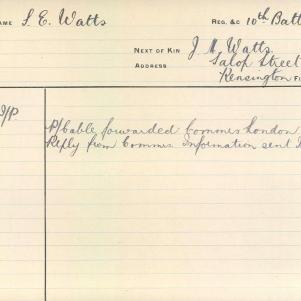 NAME S. E. Watts REG. &C 10th Batt
NEXT OF KIN J. H. Watts.
ADDRESS Salop Street
Kensington
P/Cable forwarded Commrs London
Reply from Commrs Information sent